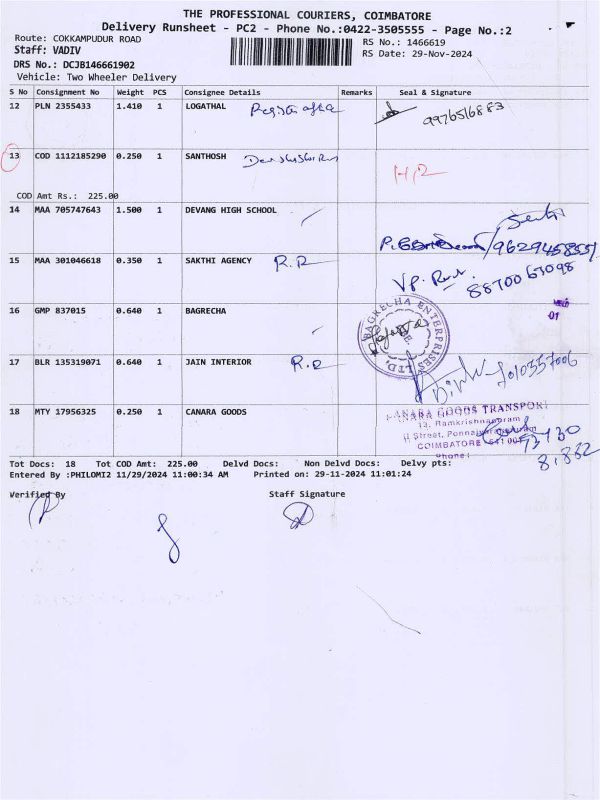 THE PROFESSIONAL COURIERS, COIMBATORE
Delivery Runsheet - PC2 - Phone No.:0422-3505555 - Page No.:2
Route: COKKAMPUDUR ROAD
RS No.: 1466619
Staff: VADIV
RS Date: 29-Nov-2024
DRS No.: DCJB146661902
Vehicle: Two Wheeler Delivery
S No Consignment No Weight PCS Consignee Details Remarks Seal & Signature
12 PLN 2355433 1.410 1 LOGATHAL 9976516883
13 COD 1112185290 0.250 1 SANTHOSH
COD Amt Rs.: 225.00
14 MAA 705747643 1.500 1 DEVANG HIGH SCHOOL
15 MAA 301046618 0.350 1 SAKTHI AGENCY R.R 8870063098
16 GMP 837015 0.640 1 BAGRECHA
BAGRECHA ENTERPRISES LTD.
17 BLR 135319071 0.640 1 JAIN INTERIOR R.R
18 MTY 17956325 0.250 1 CANARA GOODS
CANARA GOODS TRANSPORT
13, Ramkrishnapuram
II Street,
COIMBATORE
Phone :
Tot Docs: 18 Tot COD Amt: 225.00 Delvd Docs: Non Delvd Docs: Delvy pts:
Entered By :PHILOMI2 11/29/2024 11:00:34 AM Printed on: 29-11-2024 11:01:24
Verified By Staff Signature